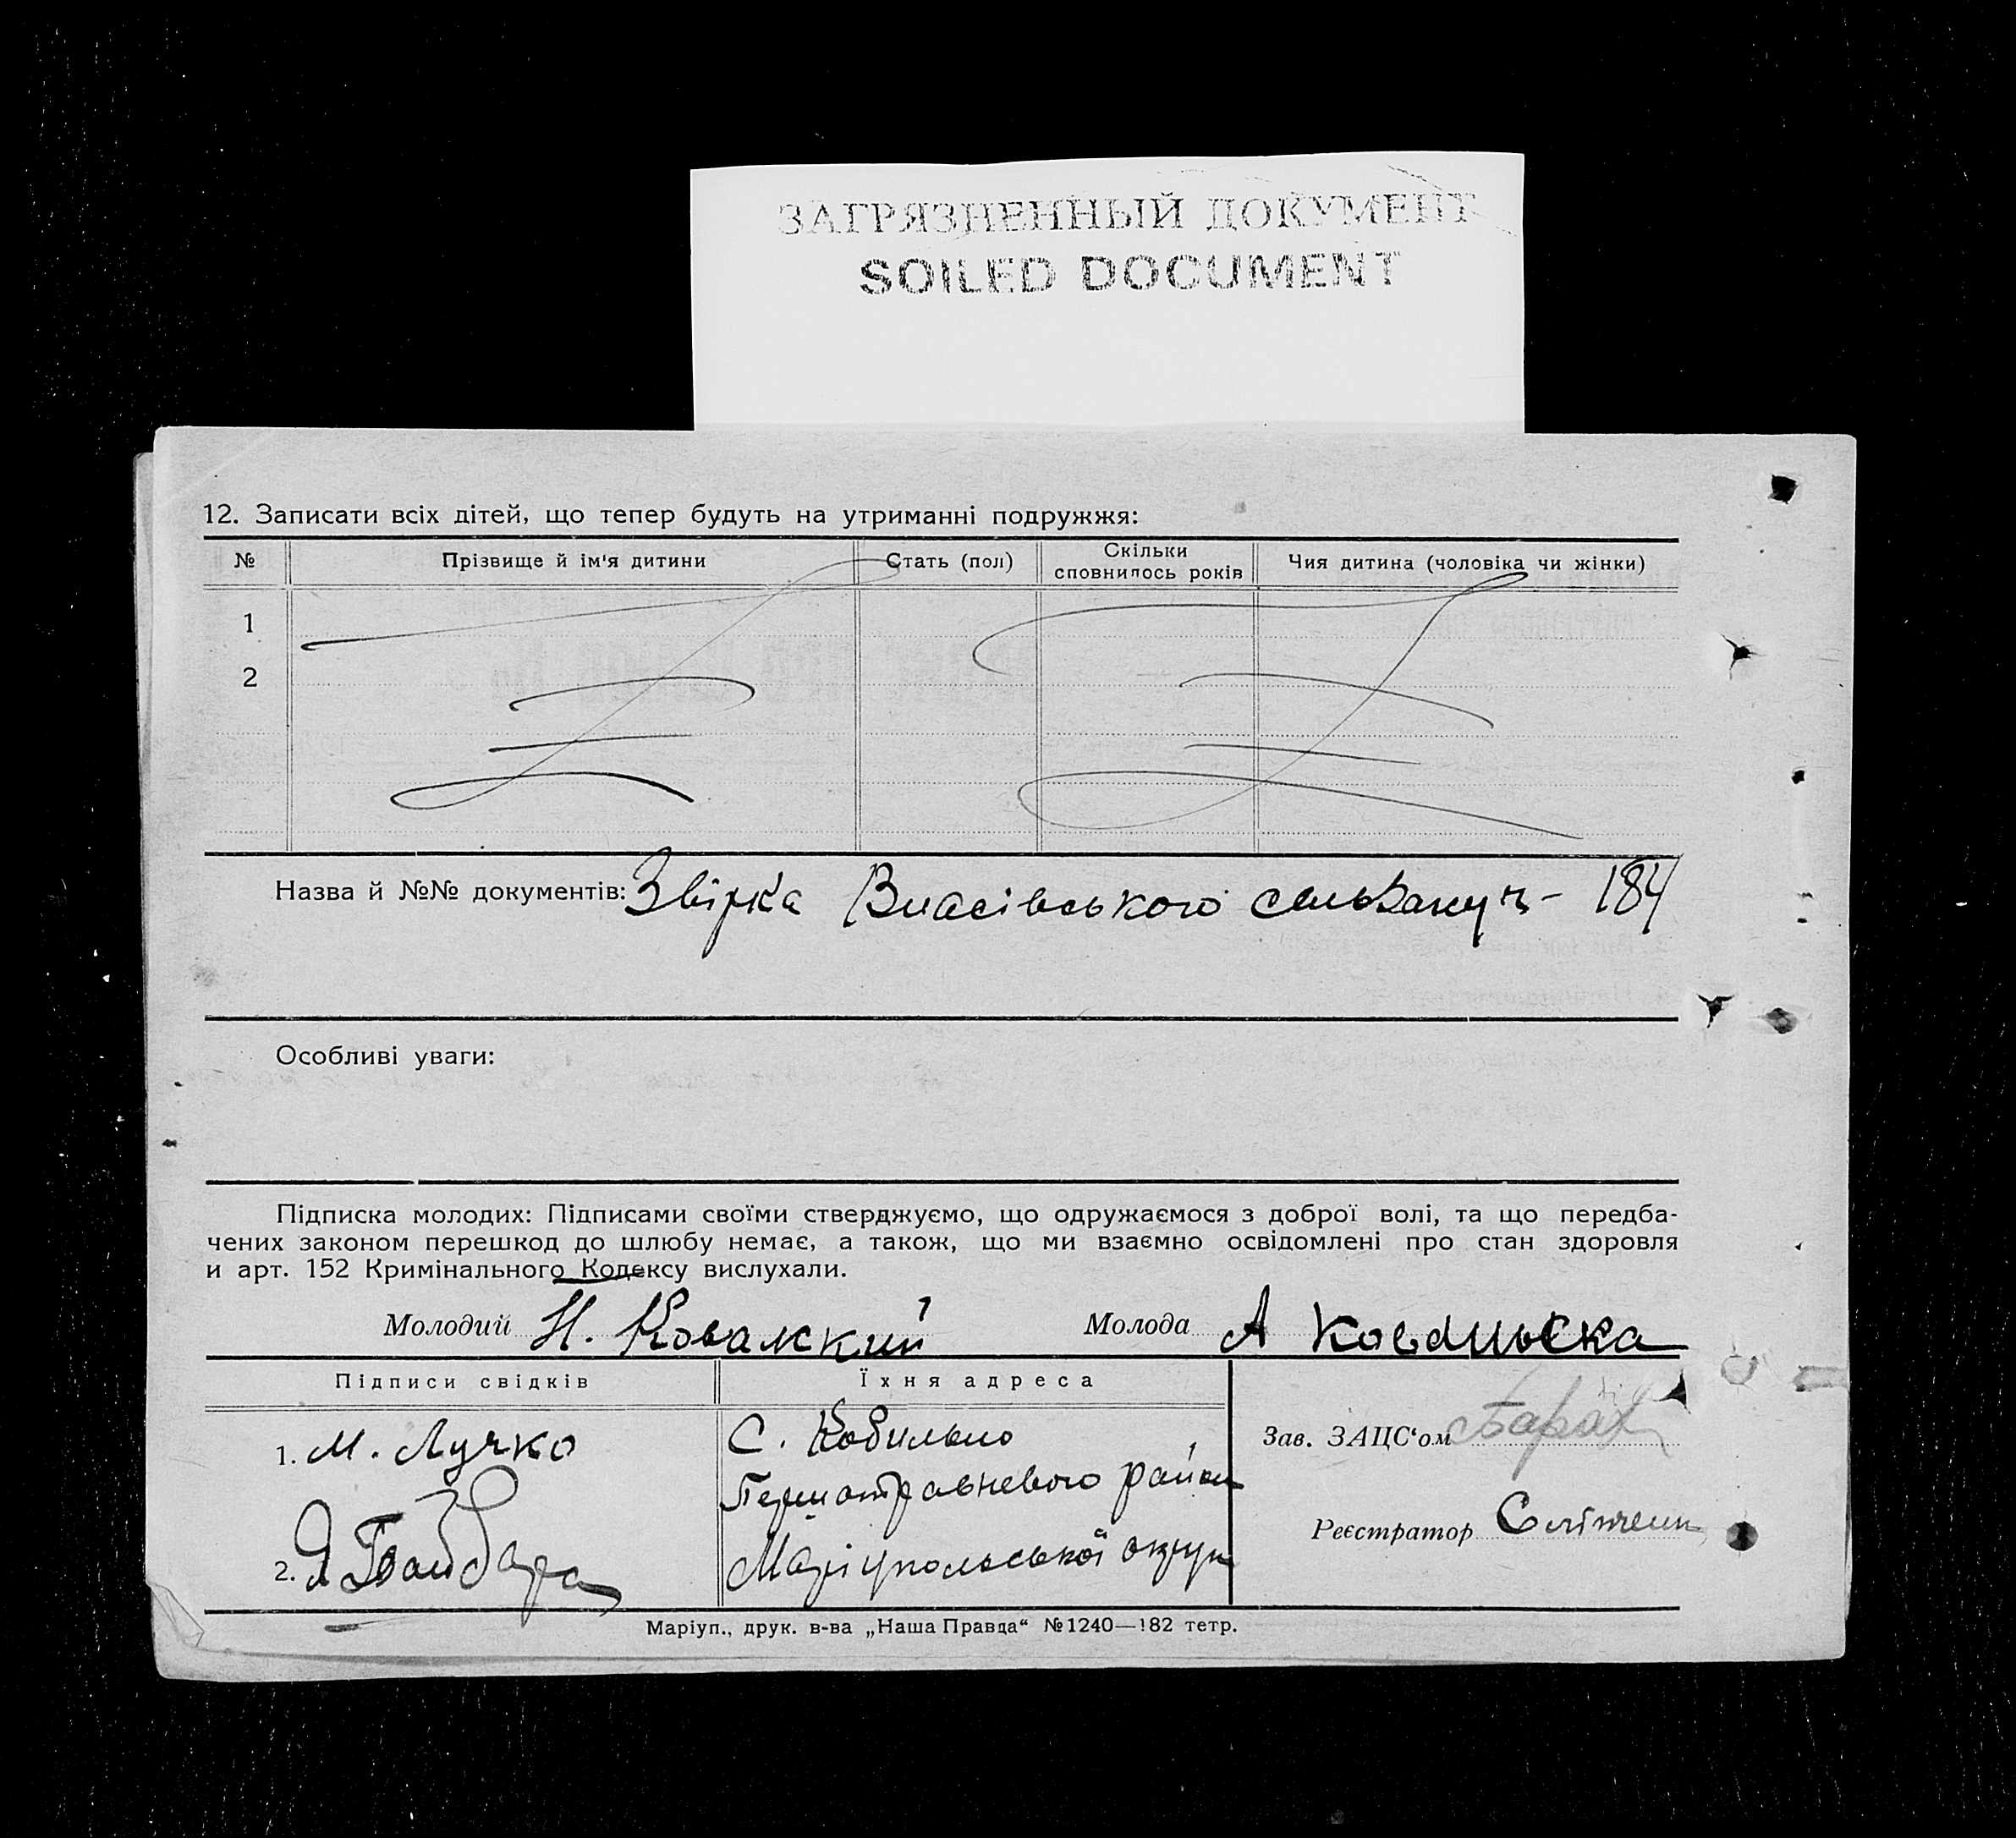 ЗАГРЯЗНЕННЫЙ ДОКУМЕНТ
SOILED DOCUMENT
12. Записати всіх дітей, що тепер будуть на утриманні подружжя:
№ Прізвище й ім'я дитини Стать (пол) Скільки сповнилось років Чия дитина (чоловіка чи жінки)
1
2
Назва й №№ документів: Звірка Власівського 184
Особливі уваги:
Підписка молодих: Підписами своїми стверджуємо, що одружаємося з доброї волі, та що передба-
чених законом перешкод до шлюбу немає, а також, що ми взаємно освідомлені про стан здоровля
и арт. 152 Кримінального Кодексу вислухали.
Молодий Н. Ковалкий Молода А Ковальска
Підписи свідків Їхня адреса
1. М. Лучко С. Кобильно Зав. ЗАЦС'ом
Першотравневого район
2. Я Байбара Маріупольської округи Реєстратор
Маріуп., друк. в-ва „Наша Правда“ №1240—182 тетр.